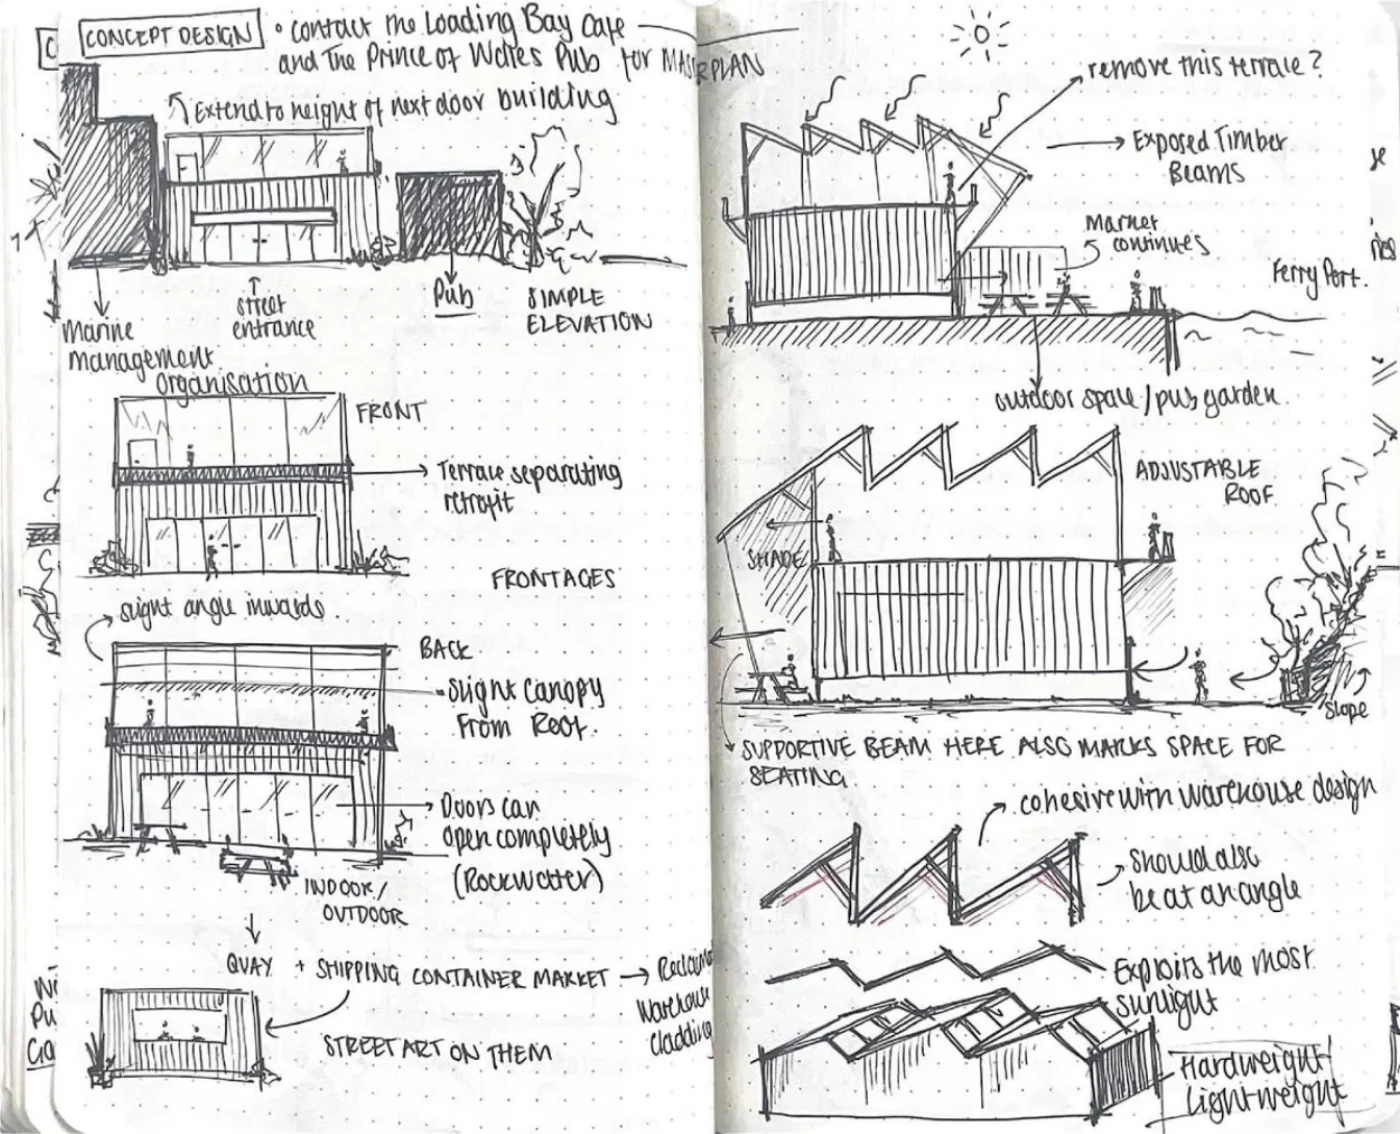 CONCEPT DESIGN
• contact the Loading Bay Cafe
and The Prince of Wales Pub for MASTERPLAN
Extend to height of next door building
Marine
management
organisation
street
entrance
Pub
SIMPLE
ELEVATION
FRONT
Terrace separating
retrofit
FRONTAGES
slight angle inwards
BACK
Slight Canopy
From Roof.
Doors can
open completely
(Rockwater)
INDOOR/
OUTDOOR
QUAY + SHIPPING CONTAINER MARKET → Reclaimed
Warehouse
cladding
STREET ART ON THEM
remove this terrace?
Exposed Timber
Beams
Market
continues
Ferry Port.
outdoor space/pub garden.
ADJUSTABLE
ROOF
SHADE
slope
SUPPORTIVE BEAM HERE ALSO MARKS SPACE FOR
SEATING
cohesive with warehouse design
should also
be at an angle
Exploits the most
sunlight
Hardweight/
Lightweight